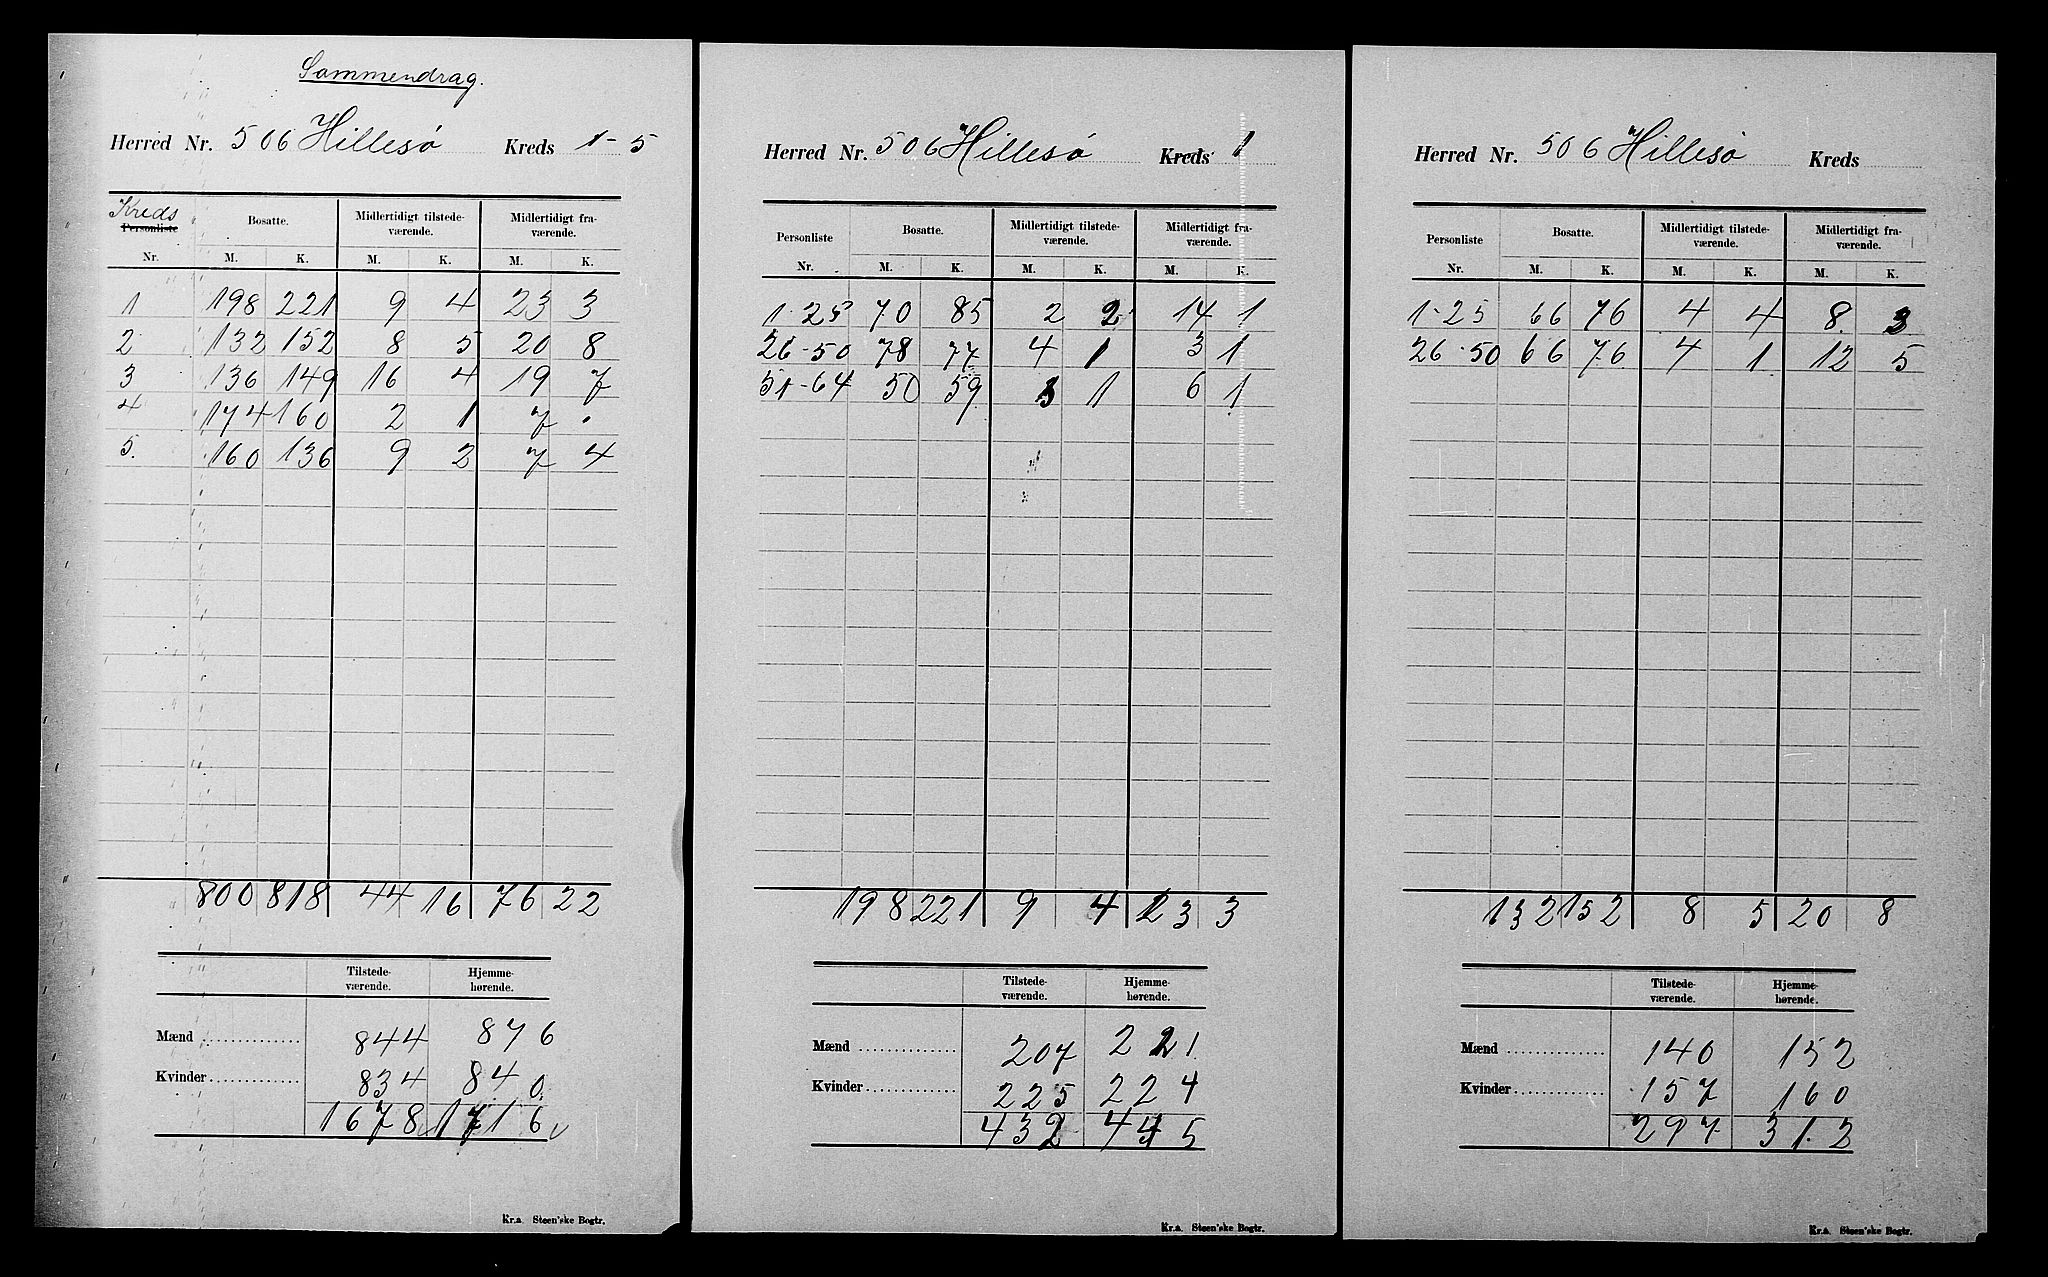 Sammendrag.
Herred Nr. 506 Hillesö Kreds 1-5
Kreds
Personliste Bosatte. Midlertidigt tilstede- Midlertidigt fra-
værende. værende.
Nr. M. K. M. K. M. K.
1 198 221 9 4 23 3
2 132 152 8 5 20 8
3 136 149 16 4 19 7
4 174 160 2 1 7 .
5. 160 136 9 2 7 4
800 818 44 16 76 22
Tilstede- Hjemme-
værende. hørende.
Mænd 844 876
Kvinder 834 840.
1678 1716
Kr.a. Steen'ske Bogtr.
Herred Nr. 506 Hillesö Kreds 1
Personliste Bosatte. Midlertidigt tilstede- Midlertidigt fra-
værende. værende.
Nr. M. K. M. K. M. K.
1-25 70 85 2 2 14 1
26-50 78 77 4 1 3 1
51-64 50 59 3 1 6 1
198 221 9 4 23 3
Tilstede- Hjemme-
værende. hørende.
Mænd 207 221
Kvinder 225 224
432 445
Kr.a. Steen'ske Bogtr.
Herred Nr. 506 Hillesö Kreds
Personliste Bosatte. Midlertidigt tilstede- Midlertidigt fra-
værende. værende.
Nr. M. K. M. K. M. K.
1-25 66 76 4 4 8 3
26-50 66 76 4 1 12 5
132 152 8 5 20 8
Tilstede- Hjemme-
værende. hørende.
Mænd 140 152
Kvinder 157 160
297 312
Kr.a. Steen'ske Bogtr.